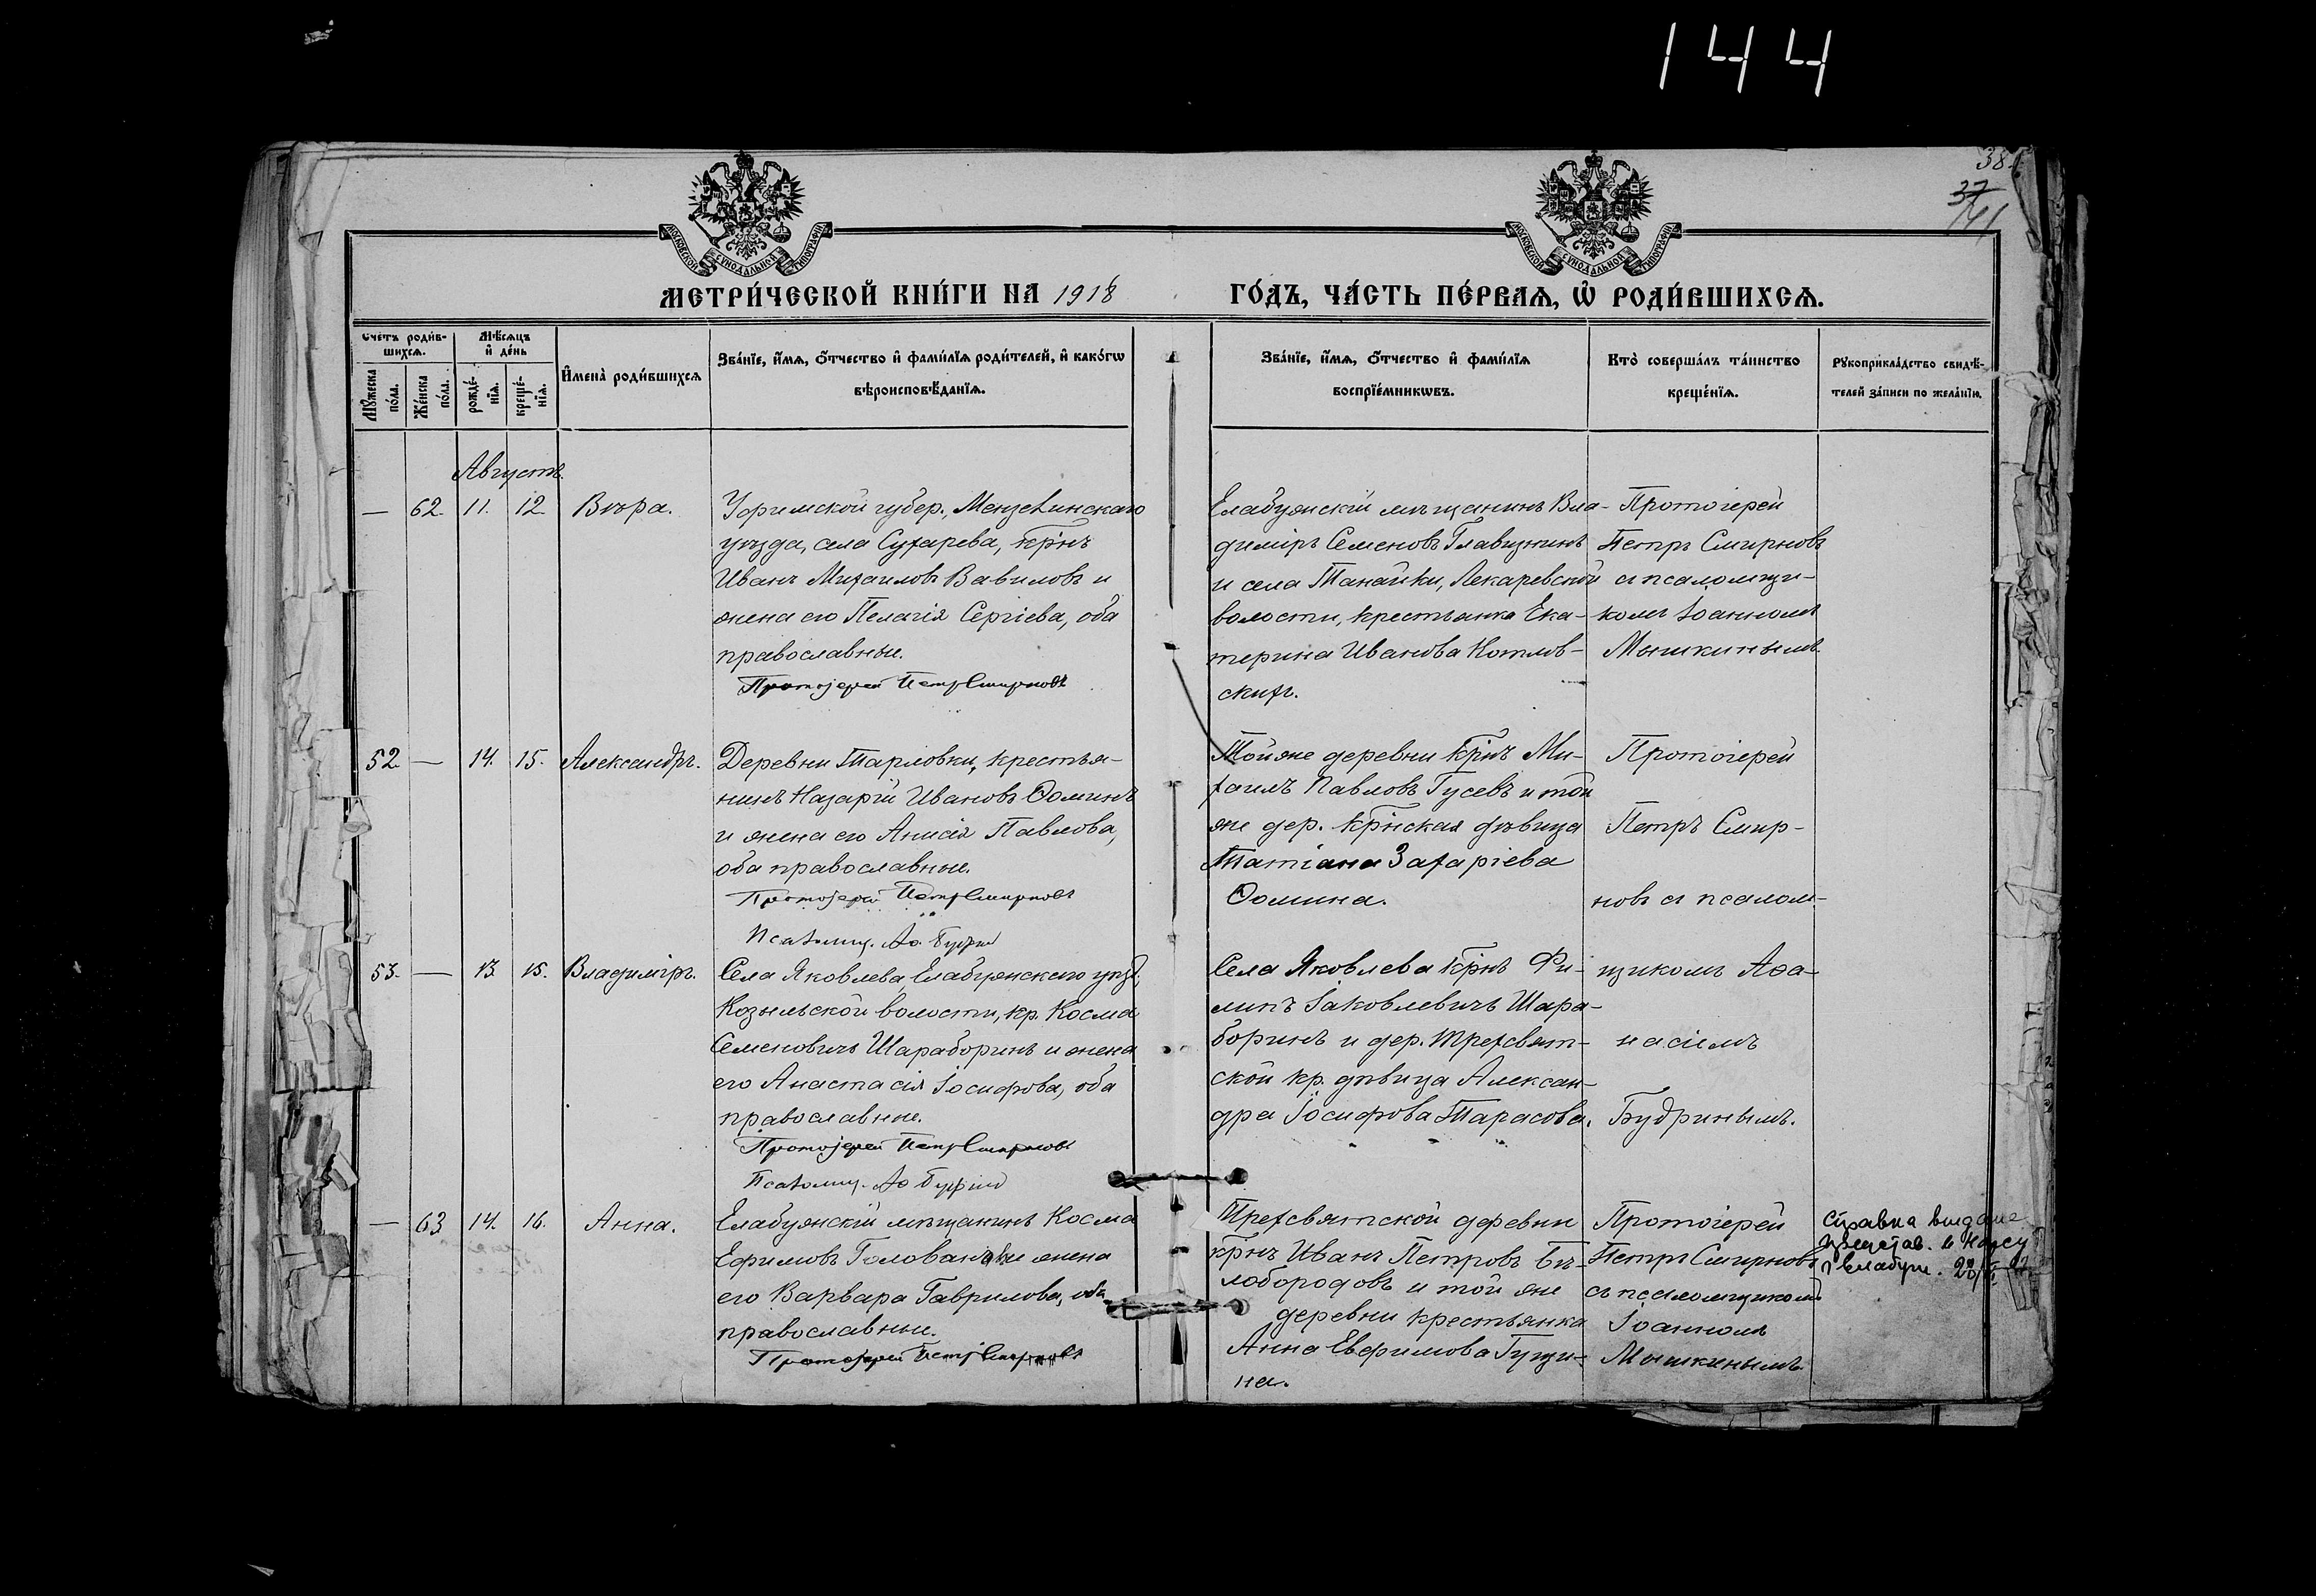 144
38
37
141
МОСКОВСКОЙ СѴНОДАЛЬНОЙ ТИПОГРАФІИ
МОСКОВСКОЙ СѴНОДАЛЬНОЙ ТИПОГРАФІИ
МЕТРИ́ЧЕСКОЙ КНИ́ГИ НА 1918 ГО́ДЪ, ЧА́СТЬ ПЕ́РВАѦ, Ѡ҆ РОДИ́ВШИХСѦ.
Сче́тъ роди́в-
шихсѧ.
Мꙋ́жеска
по́ла.
Же́нска
по́ла.
Мѣ́сѧцъ
и҆ де́нь
рожде́-
нїѧ.
креще́-
нїѧ.
И҆мена̀ роди́вшихсѧ
Зва́нїе, и҆́мѧ, ѻ҆́тчество и҆ фами́лїѧ роди́телей, и҆ како́гѡ
вѣроисповѣ́данїѧ.
Зва́нїе, и҆́мѧ, ѻ҆́тчество и҆ фами́лїѧ
воспрїе́мникѡвъ.
Кто̀ соверша́лъ та́инство
креще́нїѧ.
Рꙋкоприкла́дство свидѣ́-
телей за́писи по жела́нїю.
Августъ.
— 62. 11. 12. Вѣра.
Уфимской губер., Мензелинскаго
уѣзда, села Сухарева, крнъ
Иванъ Михаиловъ Вавиловъ и
жена его Пелагія Сергіева, оба
православные.
Протоіерей Петръ Смирновъ
Елабужскій мѣщанинъ Вла-
диміръ Семеновъ Главизнинъ
и села Танайки, Лекаревской
волости, крестьянка Ека-
терина Иванова Котлов-
скихъ.
Протоіерей
Петръ Смирновъ
съ псаломщи-
комъ Іоанномъ
Мышкинымъ.
52. — 14. 15. Александръ.
Деревни Тарловки, крестья-
нинъ Назарій Ивановъ Ѳоминъ
и жена его Анисія Павлова,
оба православные.
Протоіерей Петръ Смирновъ
Псаломщ. Аѳ. Будринъ
Той же деревни крнъ Ми-
хаилъ Павловъ Гусевъ и той
же дер. крнская дѣвица
Татіана Захаріева
Ѳомина.
Протоіерей
Петръ Смир-
новъ съ псалом-
53. — 13. 15. Владиміръ.
Села Яковлева, Елабужскаго уѣзд.
Козыльской волости, кр. Косма
Семеновичъ Шараборинъ и жена
его Анастасія Іосифова, оба
православные.
Протоіерей Петръ Смирновъ
Псаломщ. Аѳ. Будринъ
Села Яковлева крнъ Фи-
липъ Іаковлевичъ Шара-
боринъ и дер. Трехсвят-
ской кр. дѣвица Алексан-
дра Іосифова Тарасова.
щикомъ Аѳа-
насіемъ
Будринымъ.
— 63 14. 16. Анна.
Елабужскій мѣщанинъ Косма
Ефимовъ Голованов и жена
его Варвара Гаврилова, оба
православные.
Протоіерей Петръ Смирновъ
Трехсвятской деревни
крнъ Иванъ Петровъ Бѣ-
лобородовъ и той же
деревни крестьянка
Анна Евфимова Гущи-
на.
Протоіерей
Петръ Смирновъ
съ псаломщикомъ
Іоанномъ
Мышкинымъ.
Справка выдана
г Елабуги.